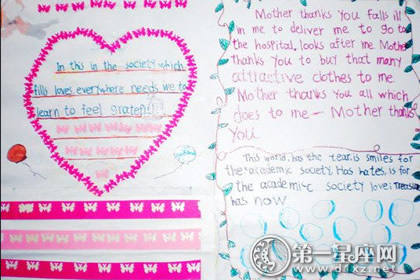 In this in the society which
fills loves everywhere needs we to
learn to feel grateful!
Mother thanks you falls ill
in me to deliver me to go to
the hospital, looks after me Mother
thanks you to buy that many
attractive clothes to me
Mother thanks you all which
does to me — Mother thanks
you
This world has the tear, is smiles for
the academic society. Has hates, is for
the academic society love: Treasure
has now
第一星座网
www.d1xz.net